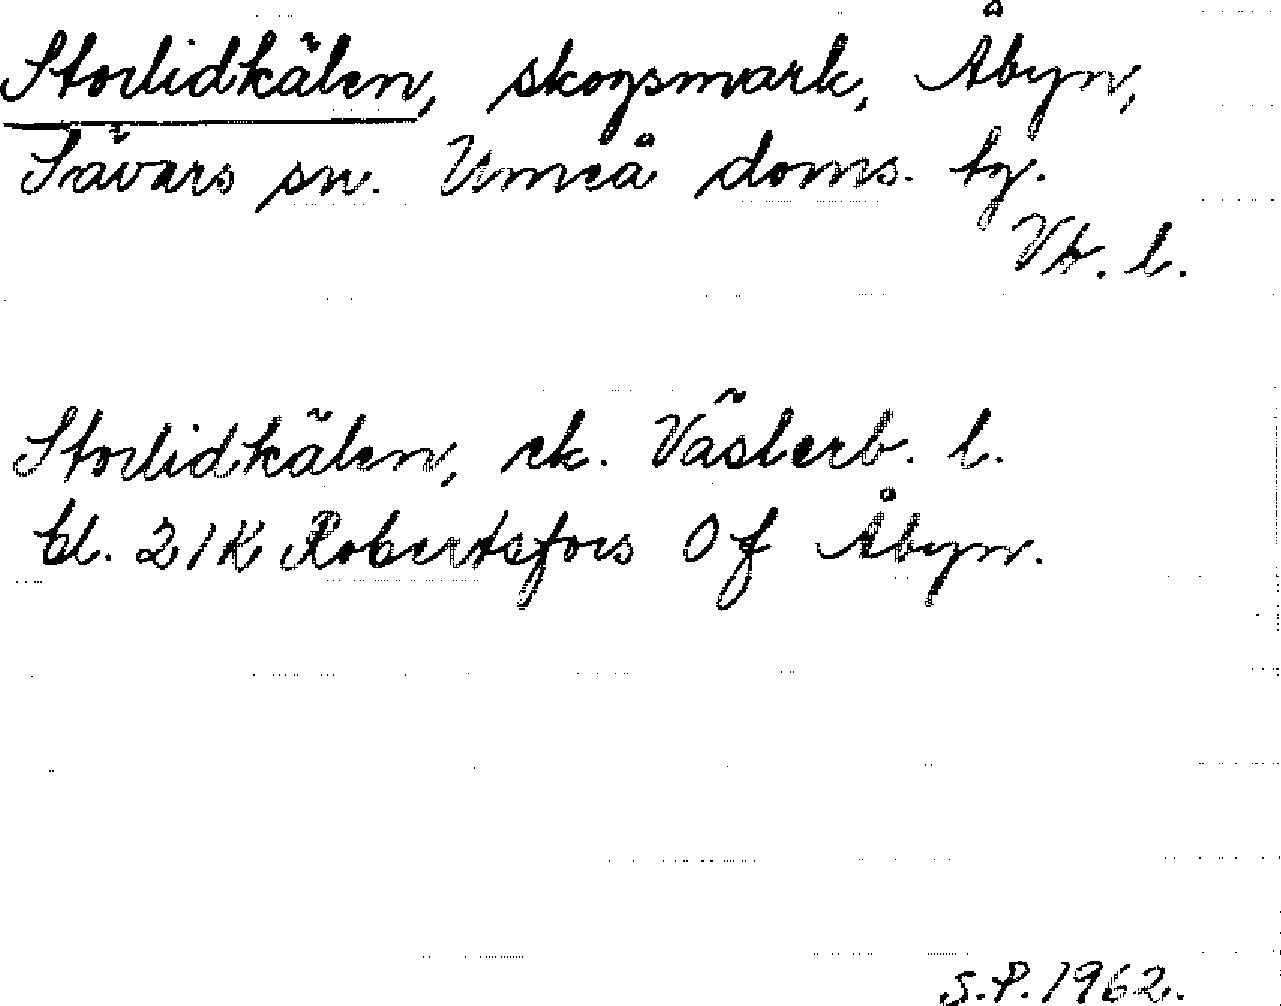 Storlidkälen, skogsmark, Åbyn,
Sävars sn. Umeå doms. tg.
Vb. l.
Storlidkälen, ek. Västerb. l.
bl. 21K Robertsfors 0f Åbyn.
S.P. 1962.